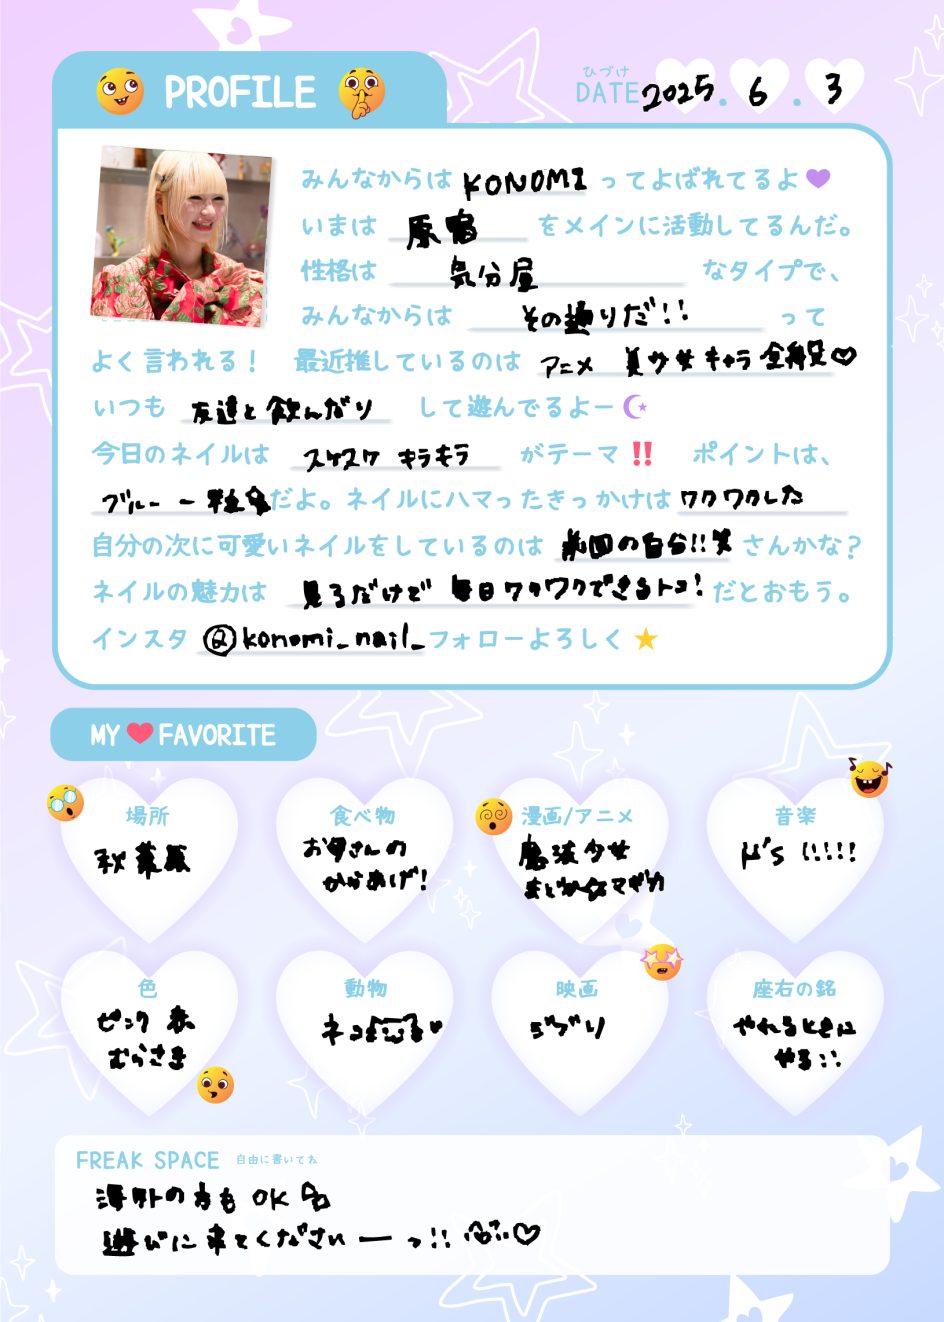 PROFILE
ひづけ
DATE 2025.6.3
みんなからは KONOMI ってよばれてるよ
いまは 原宿 をメインに活動してるんだ。
性格は 気分屋 なタイプで、
みんなからは その通りだ!! って
よく言われる! 最近推しているのは アニメ 美少女キャラ全般♡
いつも 友達と飲んだり して遊んでるよー
今日のネイルは スケスケ キラキラ がテーマ!! ポイントは、
ブルー 一粒 だよ。ネイルにハマったきっかけは ワクワクした
自分の次に可愛いネイルをしているのは 前回の自分!!笑 さんかな?
ネイルの魅力は 見るだけで 毎日ワクワクできるトコ! だとおもう。
インスタ @konomi_nail_ フォローよろしく
MY FAVORITE
場所
秋葉原
食べ物
お母さんの
からあげ!
漫画/アニメ
魔法少女
まどか☆マギカ
音楽
μ's !!!!!
色
ピンク 赤
むらさき
動物
ネコ
映画
ジブリ
座右の銘
やれるときに
やる!!
FREAK SPACE 自由に書いてね
海外の方もOK
遊びに来てくださいーっ!! ♡